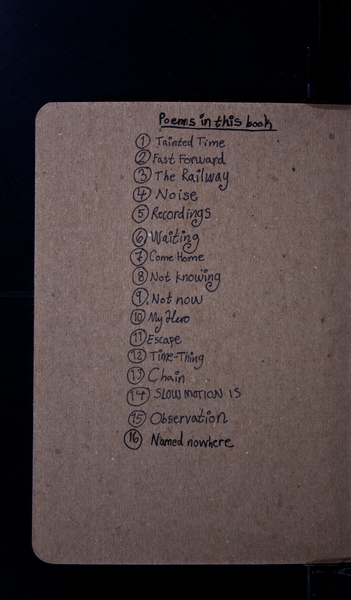 Poems in this book
1 Tainted Time
2 Fast Forward
3 The Railway
4 Noise
5 Recordings
6 Waiting
7 Come Home
8 Not knowing
9 Not now
10 My Hero
11 Escape
12 Time-Thing
13 Chain
14 SLOW MOTION IS
15 Observation
16 Named nowhere